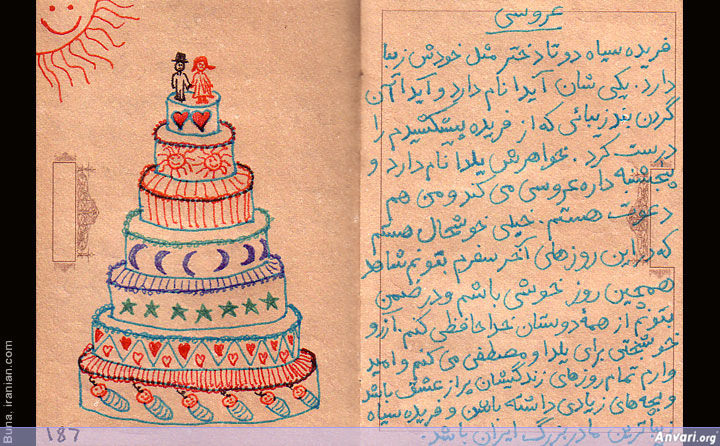 عروسی
فریده سیاه دو تا دختر مثل خودش زیبا
دارد. یکی شان آیدا نام دارد و آیدا آن
گردن بند زیبائی که از فریده پیشکشیدم را
درست کرد. خواهرش یلدا نام دارد و
پنجشنبه داره عروسی می کند و من هم
دعوت هستم. خیلی خوشحال هستم
که در این روزهای آخر سفرم بتونم شاهد
همچین روز خوشی باشم و در ضمن
بتونم از همهٔ دوستان خداحافظی کنم. آرزو
خوشبختی برای یلدا و مصطفی می کنم و امید
وارم تمام روزهای زندگیشان پر از عشق باشد
و بچه های زیادی داشته باشن و فریده سیاه
زیباترین مادربزرگ ایران باشد.
187
Buna. iranian.com
Anvari.org